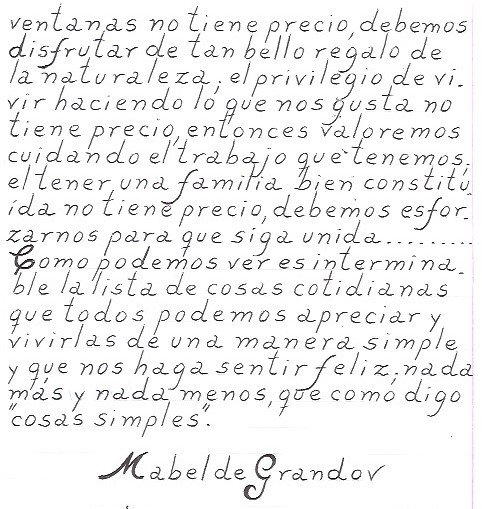 ventanas no tiene precio, debemos
disfrutar de tan bello regalo de
la naturaleza; el privilegio de vi-
vir haciendo lo que nos gusta no
tiene precio, entonces valoremos
cuidando el trabajo que tenemos;
el tener una familia bien constitu-
ída no tiene precio, debemos esfor-
zarnos para que siga unida.........
Como podemos ver es intermina-
ble la lista de cosas cotidianas
que todos podemos apreciar y
vivirlas de una manera simple
y que nos haga sentir feliz; nada
más y nada menos, que como digo
"cosas simples".
Mabel de Grandov